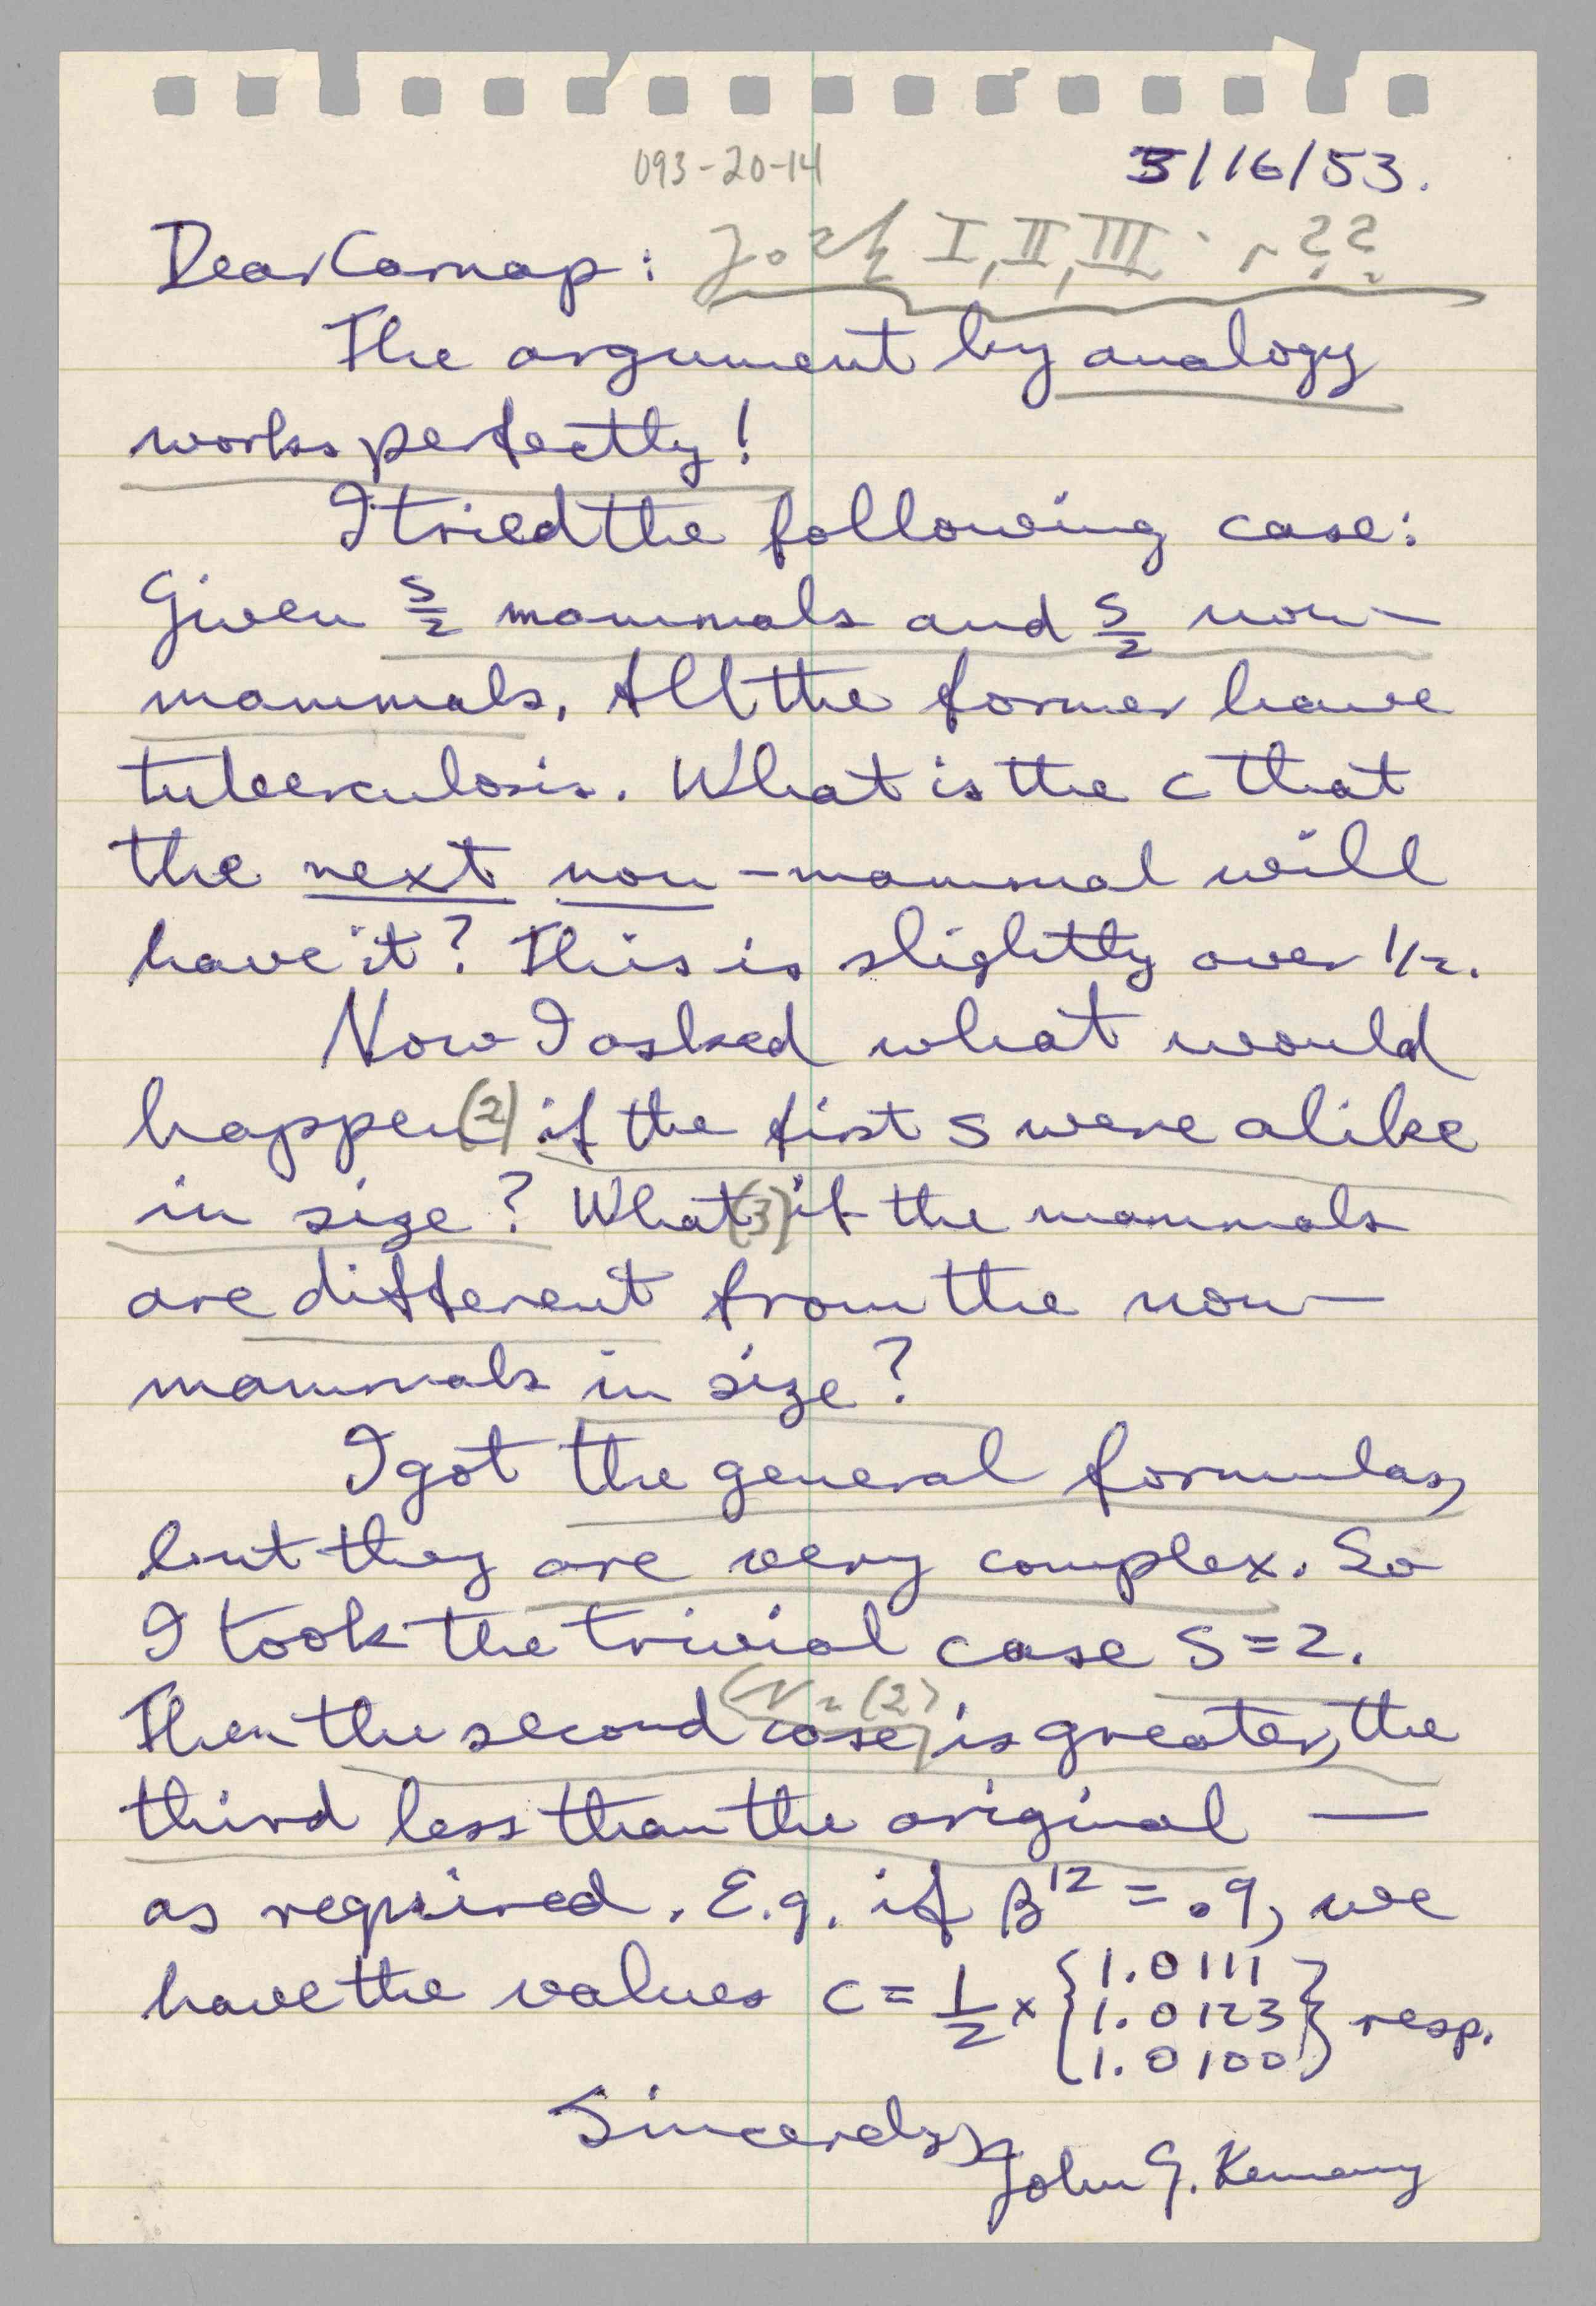 093-20-14
5/16/53.
Dear Carnap: I, II, III ??
The argument by analogy
works perfectly!
I tried the following case:
Given s/2 mammals and s/2 non-
mammals. All the former have
tuberculosis. What is the c that
the next non-mammal will
have it? This is slightly over 1/2.
Now I asked what would
happen (2) if the first s were alike
in size? What (3) if the mammals
are different from the non-
mammals in size?
I got the general formulas,
but they are very complex. So
I took the trivial case s=2.
(2)
Then the second case is greater, the
third less than the original —
as required. E.g. if β¹² = .9, we
have the values c = 1/2 × {1.0111
1.0123
1.0100} resp.
Sincerely,
John G. Kemeny